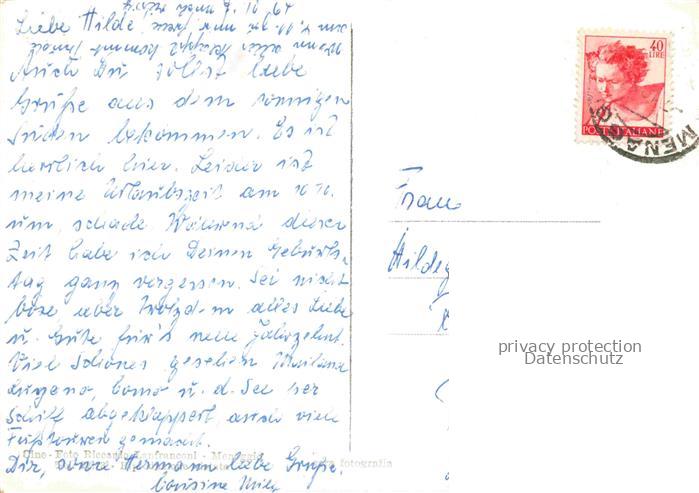 7. 10. 64
Liebe Hilde,
Auch Du sollst liebe
Grüße aus dem sonnigen
Süden bekommen. Es ist
herrlich hier. Leider ist
meine Urlaubszeit am 10.10.
um, schade. Während dieser
Zeit habe ich Deinen Geburts-
tag ganz vergessen. Sei nicht
böse aber trotzdem alles Liebe
u. Gute für's neue Jahrzehnt.
Viel Schönes gesehen Mailand
Lugano, Como u. d. See per
Schiff abgeklappert, auch viele
Fußtouren gemacht.
Cine - Foto Riccardo Lanfranconi - Menaggio
fotografia
Dir, sowie Hermann liebe Grüße.
Cousine
40
LIRE
POSTE ITALIANE
MENAGG
Frau
Hildeg
privacy protection
Datenschutz